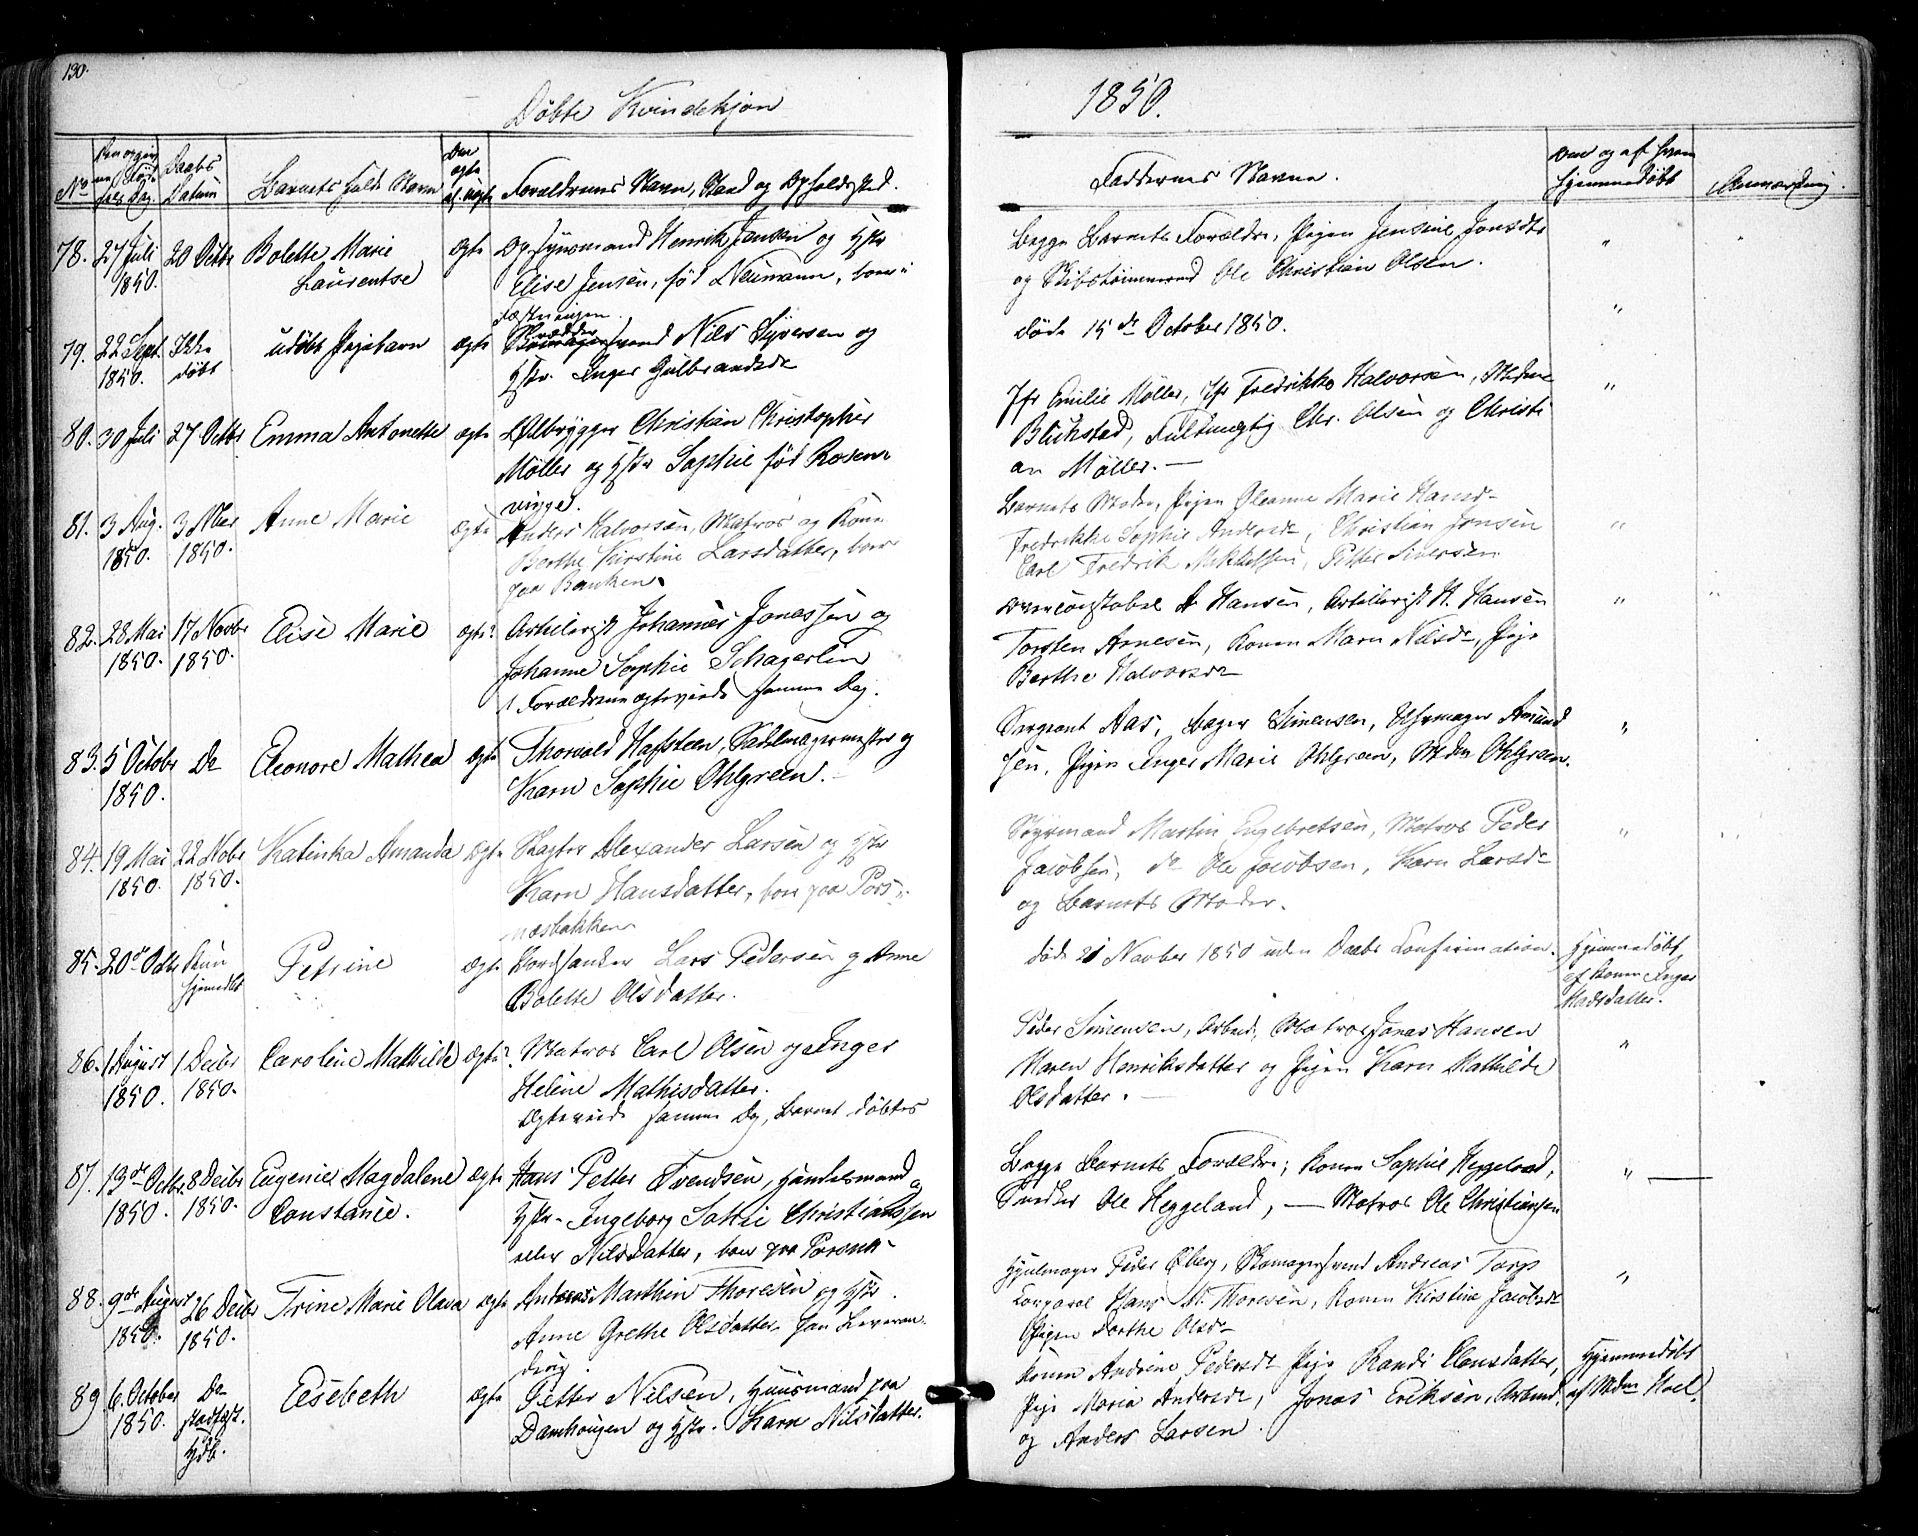 130.
Døbte Kvindekjøn
1850.
No
Daabs Datum
Barnets fulde Navn
Forældrenes Navn, Stand og Opholdssted.
Faddernes Navne.
Om og af hvem hjemmedøbt
Anmærkning.
78. 27 Juli 1850. 20 Octbr Bolette Marie Laurentse ægte Opsynsmand Henrik Jensen og Hstr
Elise Jensen, fød Neumann, boer i
Fæstningen.
begge Barnets Forældre, Pigen Jensine Jonsdtr
og Skibstømmermand Ole Christian Olsen.
79. 22 Sept. 1850. Ikke døbt udøbt Pigebarn ægte Skrædder svend Nils Syversen og
Hstr. Inger Gulbrandsdr
døde 15de October 1850.
80. 30 Juli 27 Octbr Emma Antonette ægte Ølbrygger Christian Christopher
Møller og Hstr Sophie fød Rosen-
vigge.
Jfr Emilie Møller, Jfr Fredrikke Halvorsen, Mdme
Blichstad, Fuldmegtig Chr. Olsen og Christi
an Møller. —
81. 3 Aug. 1850. 3 Nbr 1850. Anne Marie ægte Anders Halvorsen, Matros og Kone
Berthe Kirstine Larsdatter, boer
paa Banken.
Barnets Moder, Pigen Oleanne Marie Hansd-
Fredrikke Sophie Andersdr, Christian Jensen
Carl Fredrik Mikkelsen, Petter Siversen
82. 28 Mai 1850. 17 Novbr 1850. Elise Marie ægte Artillerist Johannes Jonassen og
Johanne Sophie Schagerlin
Forældrene ægteviede samme Dag.
Overconstabel A Hansen, Artillerist H. Hansen
Torsten Arnesen, Konen Maren Nilsdr, Pige
Berthe Halvorsdr
83. 5 Octobr 1850. Do Eleonore Mathea ægte Thorvald Hafsteen, Sadelmagermester og
Karn Sophie Ohlgreen.
Sargeant Aas, Bager Simensen, Uhrmager Amund
sen, Pigen Inger Marie Ohlgreen, Mdm Ohlgreen.
84. 19 Mai 1850. 22 Nobr 1850. Katinka Amanda ægte Slagter Alexander Larsen og Hstr
Karn Hansdatter, boer paa Pors-
næsbakken
Styrmand Martin Engebretsen, Matros Peder
Jacobsen, do Ole Jacobsen, Karn Larsdr
og Barnets Moder.
85. 20de Octbr Kun hjemmedøbt Petrine ægte Lars Pedersen og Anne
Bolette Olsdatter.
døde 21 Novber 1850 uden Daabs Confirmation.
Hjemmedøbt af Konen Inger Madsdatter.
86. 1 August 1850. 1 Decbr 1850. Caroline Mathilde ægte? Matros Carl Olsen og Inger
Helene Mathisdatter.
Ægteviede samme Dag, Barnet døbtes
Peder Simensen, Arbeid., Matros Jonas Hansen
Maren Henriksdatter og Pigen Karn Mathilde
Olsdatter.
87. 13de Octbr 1850. 8 Decbr 1850. Eugenie Magdalene Constance. ægte Hans Petter Svendsen, Handelsmand og
Hstr Ingeborg Christianssen
eller Nilsdatter, boer paa Porsnæs
Begge Barnets Forældre; Konen Sophie Heggeland,
Snedker Ole Heggeland, — Matros Ole Christiansen
88. 9de August 1850. 26 Decbr 1850. Trine Marie Olava ægte Andreas Marthin Thoresen og Hstr
Anne Grethe Olsdatter
Hjulmager Peder Øberg, Skomagersvend Andreas Torp
Corporal Hans M. Thoresen, Konen Kirstine Jacobsdr
Pigen Dorthe Olsdr
89 6. October 1850. Do stadfæst. Hdb. Elisebeth ægte Petter Nilsen, Huusmand paa
Damhougen og Hstr. Karn Nilsdatter.
Konen Andrine Pedersdr Pige Randi Clausdatter,
Pige Maria Andersdr, Jonas Eriksen, Arbmd
og Anders Larsen.
Hjemmedøbt af Mdm Hoel.